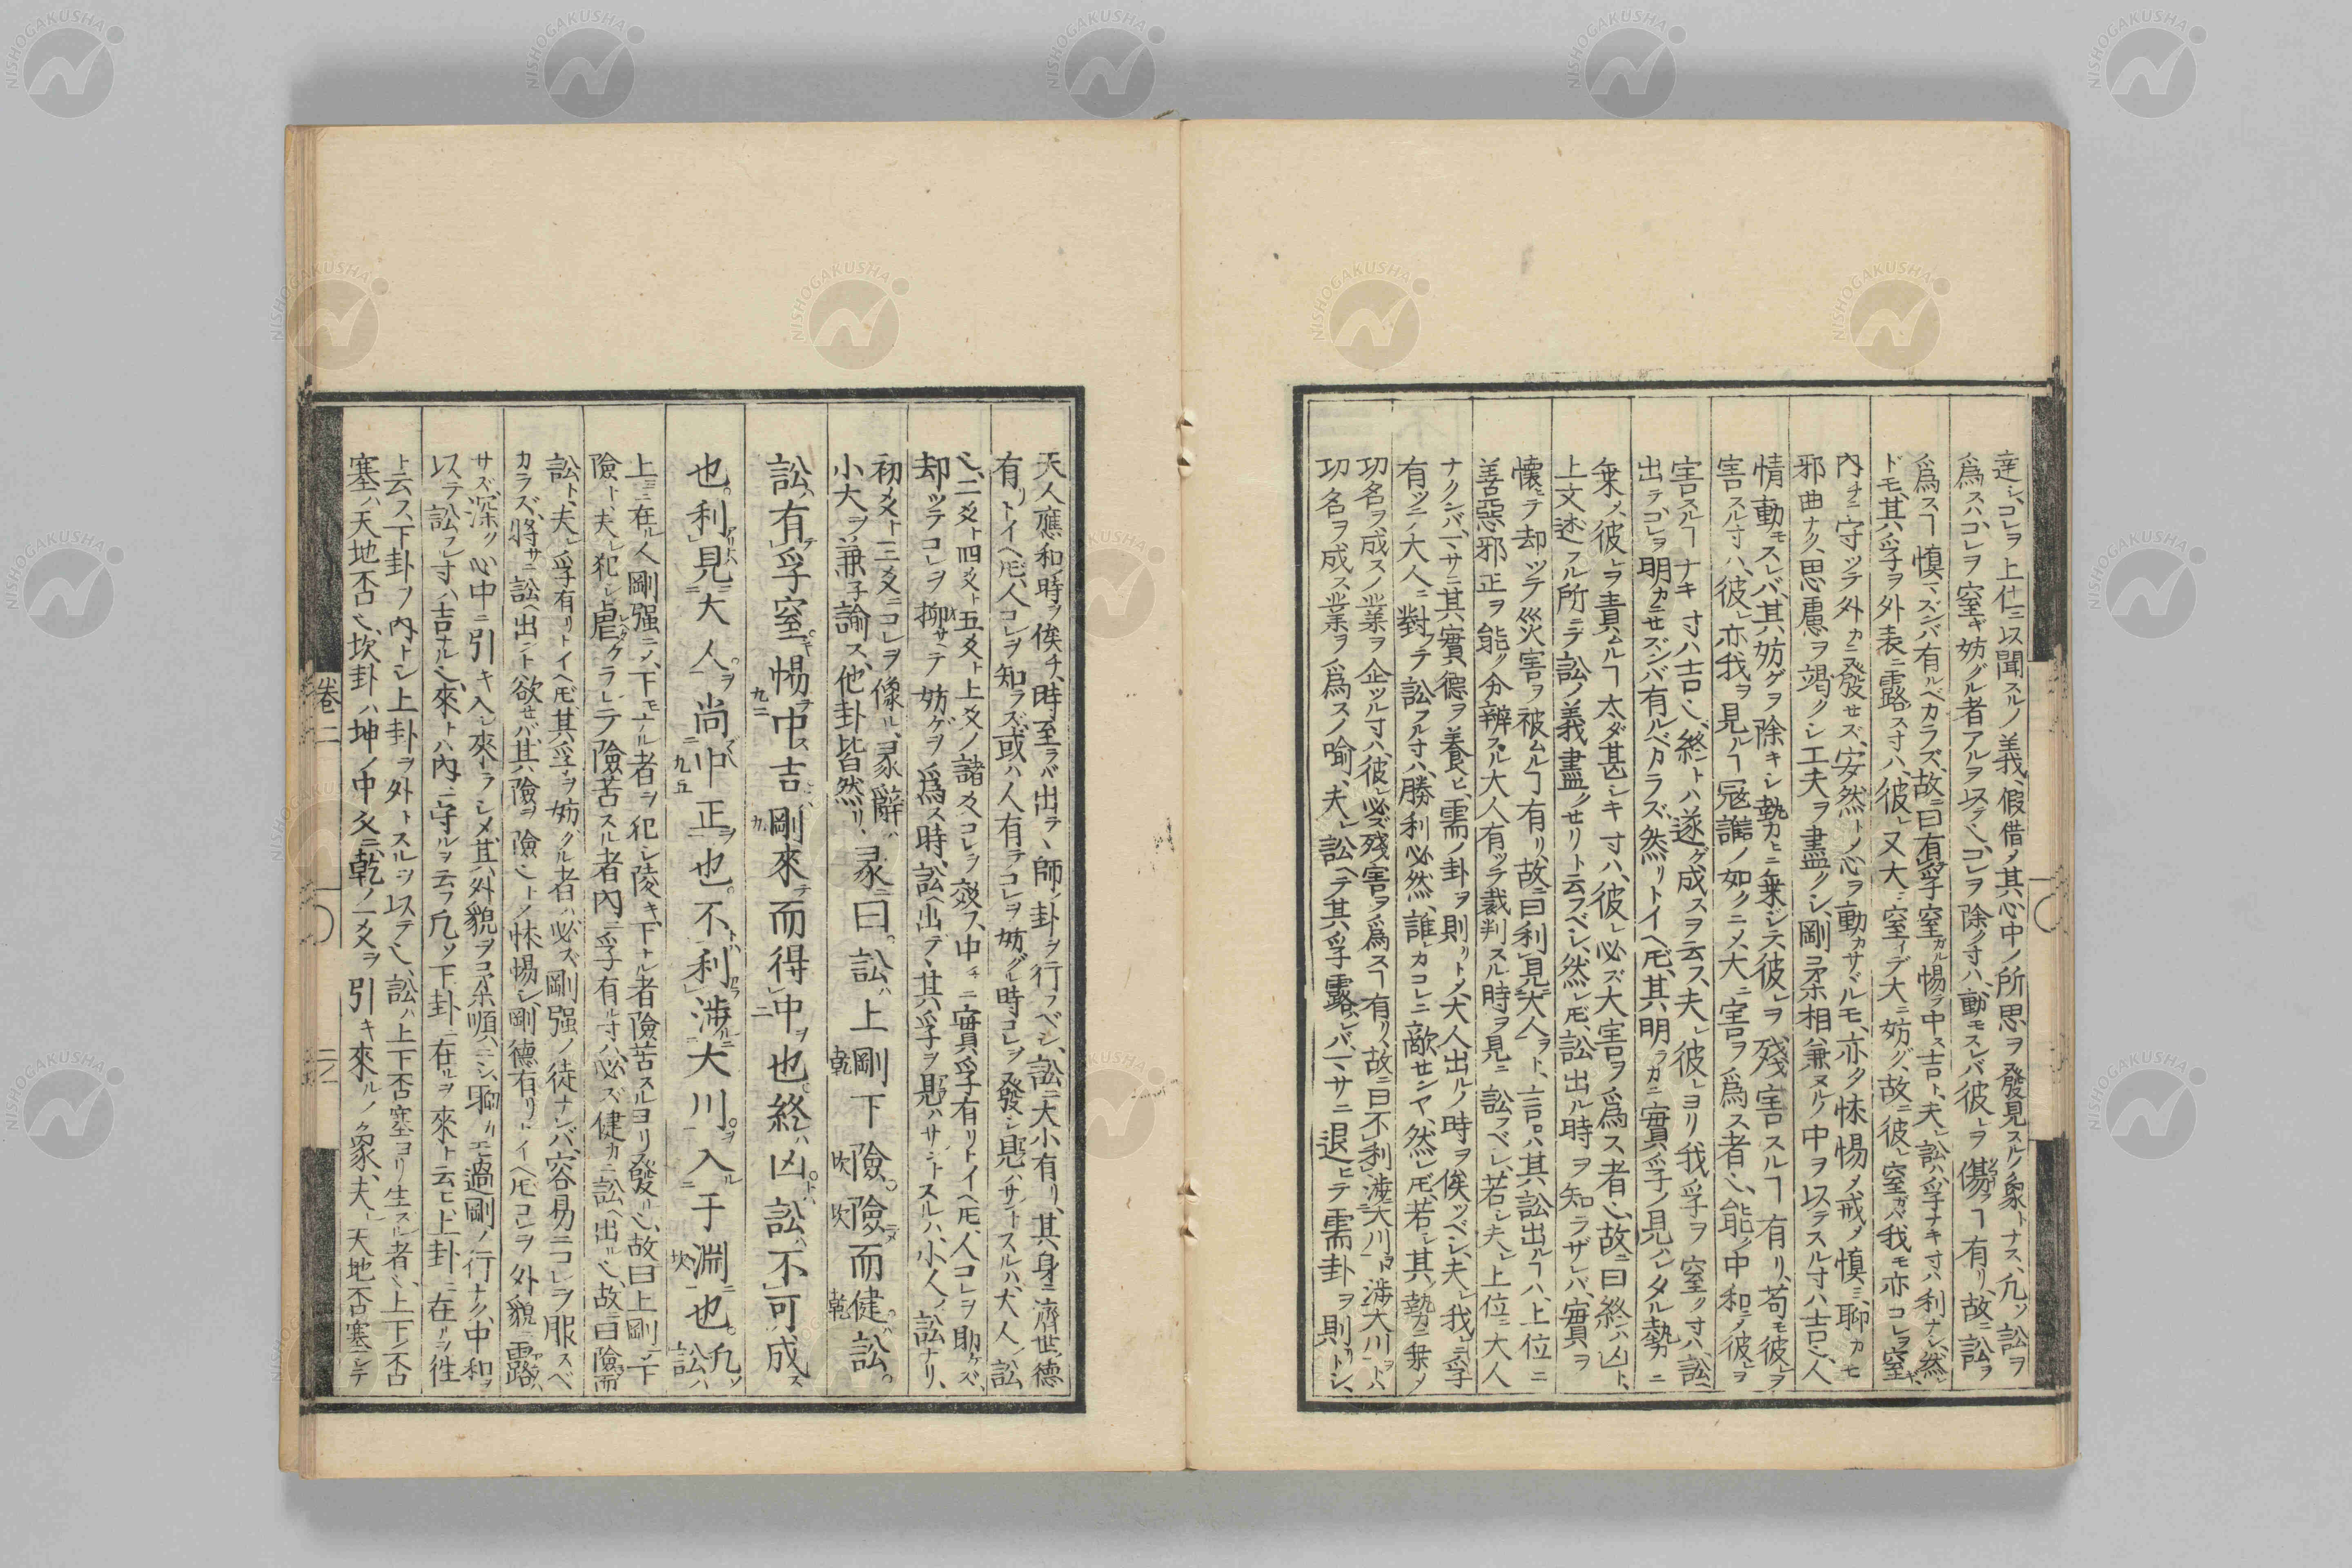 達シ、コレヲ上仁ニ以聞スルノ義、假借ノ其心中ノ所思ヲ發見スルノ象トナス、凡ソ訟ヲ
爲スハ、コレヲ窒ギ妨グル者アルヲ以テ也、コレヲ除ク寸ハ、動モスレバ彼レヲ傷フヿ有リ、故ニ訟ヲ
爲スヿ愼マズンバ有ルベカラズ、故ニ曰有孚窒ガル惕ヲ中ス吉ト、夫レ訟ハ孚ナキ寸ハ利ナシ、然レ
ドモ、其ハ孚ヲ外表ニ露ス寸ハ、彼レ又大ニ窒イデ大ニ妨グ、故ニ彼レ窒ガバ我モ亦コレヲ窒ギ、
內チニ守ッテ外カニ發セズ、安然トノ心ヲ動カサヾルモ、亦タ怵惕ノ戒メ愼ミ、聊カモ
邪曲ナク、思慮ヲ竭クシ工夫ヲ盡クシ、剛柔相ヒ兼ヌルノ中ヲ以テスル寸ハ吉也、人
情動モスレバ、其妨ゲヲ除キシ勢ヒニ乗ジテ、彼レヲ殘害スルヿ有リ、苟モ彼レヲ
害スル寸ハ、彼レ亦我ヲ見ルヿ寇讎ノ如クニメ、大ニ害ヲ爲ス者也、能ク中和ノ彼レヲ
害スルヿナキ寸ハ吉也、終トハ遂ゲ成スヲ云ス、夫レ彼レヨリ我孚ヲ窒ク寸ハ、訟ヘ
出テコレヲ明カニセズンバ有ルベカラズ、然リトイヘ𪜈、其明ラカニ實孚ノ見ハレタル勢ニ
乗メ、彼レヲ責ムルヿ太ダ甚シキ寸ハ、彼レ必ズ大害ヲ爲ス者也、故ニ曰終ハ凶ト、
上文述フル所ニテ訟ノ義盡クセリト云フベシ、然レ𪜈、訟出ル時ヲ知ラザレバ、實ヲ
懷テ却ッテ災害ヲ被ムルヿ有リ、故ニ曰利見大人ヲト、言ロハ其訟出ルヿハ、上位ニ
善惡邪正ヲ能ク分辨スル大人有ッテ裁判スル時ヲ見ニ訟フベシ、若シ夫レ上位ニ大人
ナクンバ、マサニ其實德ヲ養ヒ、需ノ卦ヲ則リトメ、大人出ルノ時ヲ俟ッベシ、夫レ我レニ孚
有ッテノ大人ニ對フテ訟フル寸ハ、勝利必然、誰レカコレニ敵センヤ、然レ𪜈、若シ其勢ニ乗メ
功名ヲ成スノ業ヲ企ッル寸ハ、彼レ必ズ殘害ヲ爲スヿ有リ、故ニ曰不利涉大川ヲト、涉大川ヲトハ
功名ヲ成ス業ヲ爲スノ喻、夫レ訟ヘテ其孚露レバ、マサニ退ヒテ需卦ヲ則リトシ、
天人應和時ヲ俟チ、時至ラバ出ラヽ師シ卦ヲ行フベシ、訟ニ大小有リ、其身ニ濟世ノ德
有リトイヘ𪜈、人コレヲ知ラズ、或ハ人有テコレヲ妨グル時、コレヲ發シ見ハサントスルハ、大人ノ訟
也、二爻ト四爻ト五爻ト上爻ノ諸爻コレヲ效ス、中チニ實孚有リトイヘ𪜈、人コレヲ助ケズ、
却ッテコレヲ抑サヘテ妨ゲヲ爲ス時、訟ヘ出デヽ其孚ヲ見ハサントスルハ、小人ノ訟ナリ、
初爻ト三爻ニコレヲ像ル、彖辭ハ
小大ヲ兼子論ス、他卦皆然リ、彖ニ曰。訟ハ上剛乾下險。坎險坎而健。乾訟。
訟ハ有孚窒惕中吉九二剛來テ而得中ヲ也。終ハ凶。訟不可成ス
也。利見大人。尚中正ヲ也九五。不利涉大川。入于淵坎也。凡ソ訟ハ
上ニ在ル人剛强ニメ、下モナル者ヲ犯シ陵キ、下ナル者險苦スルヨリ發リ也、故曰上剛ニメ下
險ト、夫レ犯シ虐ケラレテ險苦スル者、內ニ孚有ル寸ハ、必ズ健カニ訟ヘ出ル也、故ニ曰險ニメ而
訟ト、夫レ孚有リトイヘ𪜈、其孚ヲ妨グル者ハ、必ズ剛强ノ徒ナンバ、容易ニコレヲ服スベ
カラズ、將サニ訟ヘ出ント欲セバ、其險ヲ險也トメ怵惕シ、剛德有リトイヘ𪜈コレヲ外貌ニ露ハ
サズ、深ク心中ニ引キ入レ來ラシメ、其外貌ヲ柔順ニシ、聊カモ過剛ノ行ナク、中和ヲ
以テ訟フレ寸ハ吉ナル也、來トハ內ニ守ルヲ云フ、凡ソ下卦ニ在ルヲ來ト云ヒ、上卦ニ在ルヲ往
ト云ス、下卦ヲ內トシ上卦ヲ外トスルヲ以テ也、訟ハ上下否塞ヨリ生スル者也、上下ノ否
塞ハ天地否也、坎卦ハ坤ノ中爻ニ乾ノ一爻ヲ引キ來ルノ象、夫レ天地否塞シテ
卷二